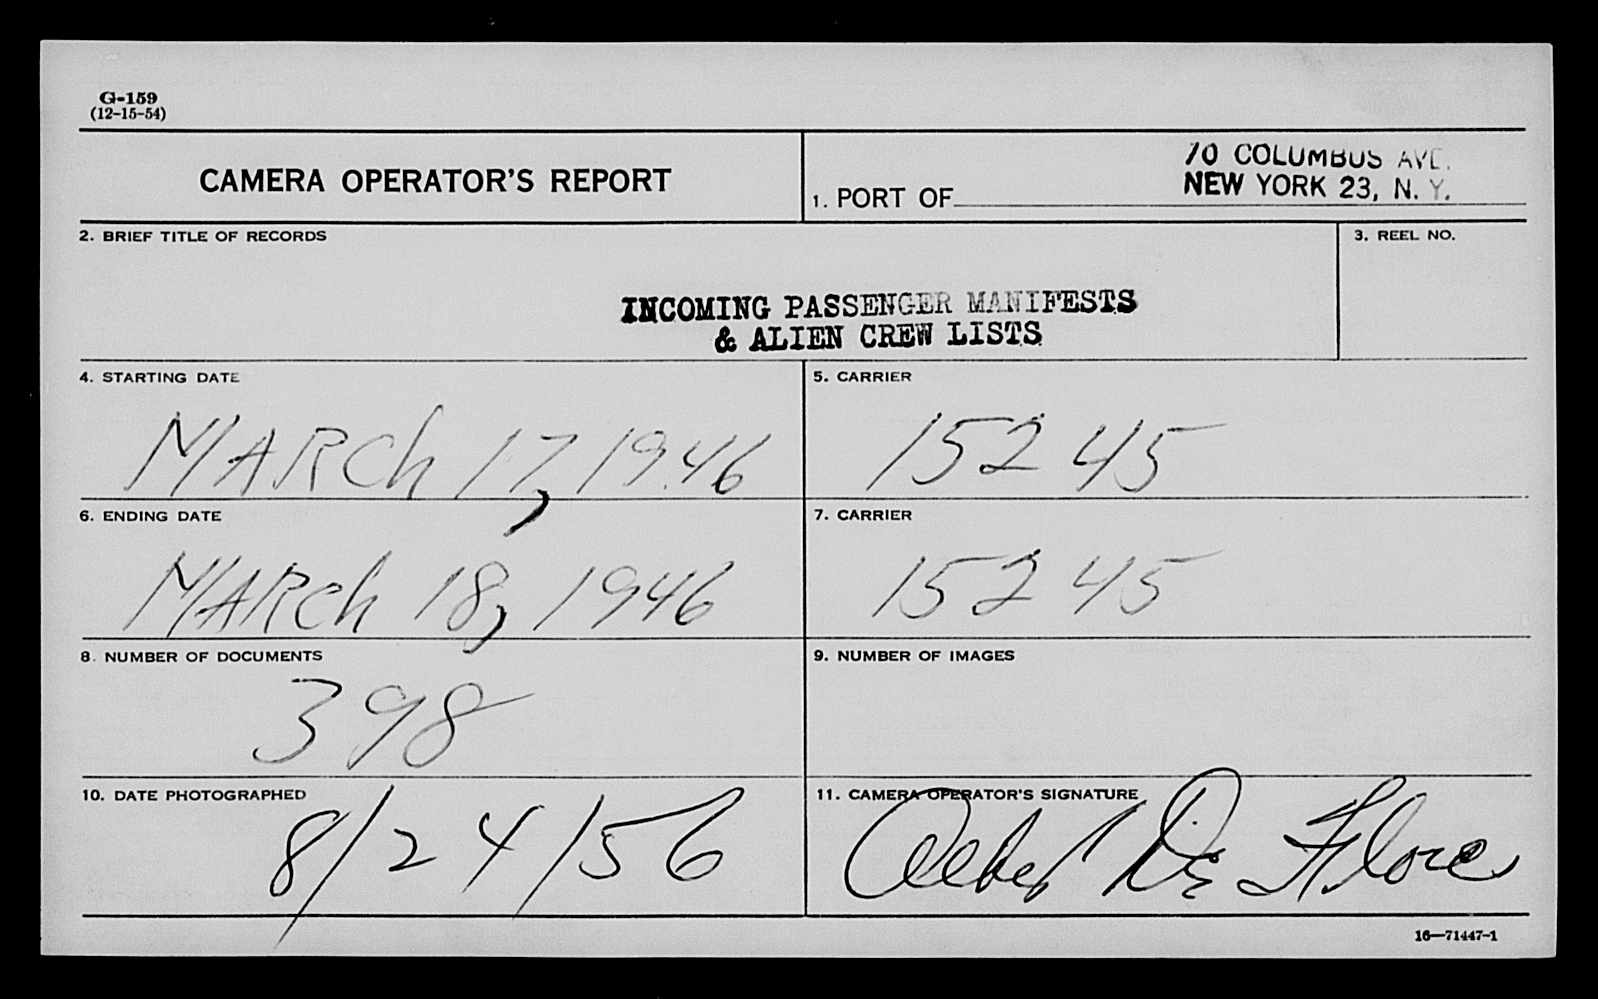 G-159
(12-15-54)
CAMERA OPERATOR'S REPORT
70 COLUMBUS AVE.
1. PORT OF NEW YORK 23, N. Y.
2. BRIEF TITLE OF RECORDS
3. REEL NO.
INCOMING PASSENGER MANIFESTS
& ALIEN CREW LISTS
4. STARTING DATE
5. CARRIER
MARCh 17, 1946
15245
6. ENDING DATE
7. CARRIER
MARCh 18, 1946
15245
8. NUMBER OF DOCUMENTS
9. NUMBER OF IMAGES
398
10. DATE PHOTOGRAPHED
11. CAMERA OPERATOR'S SIGNATURE
8/24/56
De Flore
16—71447-1